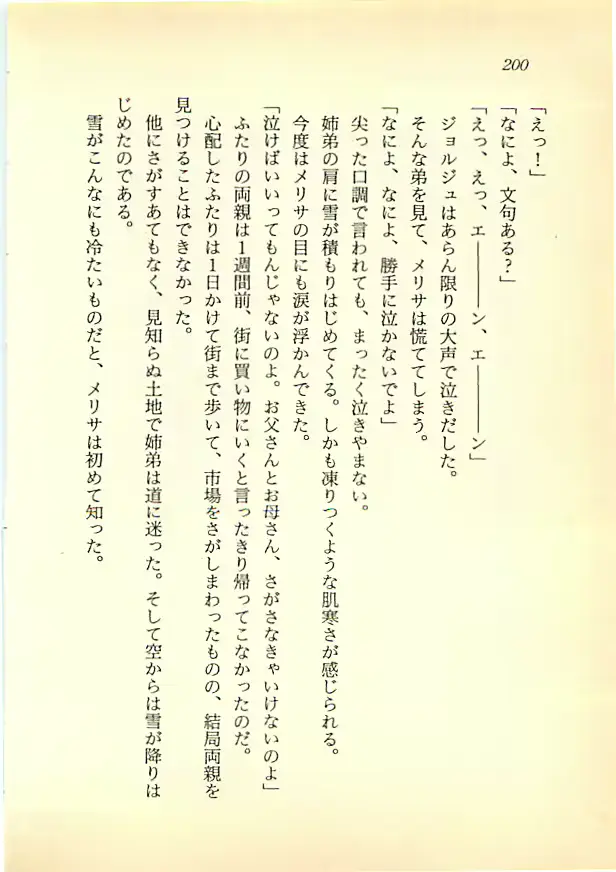 200
「えっ！」
「なによ、文句ある？」
「えっ、えっ、エ―――ン、エ―――ン」
ジョルジュはあらん限りの大声で泣きだした。
そんな弟を見て、メリサは慌ててしまう。
「なによ、なによ、勝手に泣かないでよ」
尖った口調で言われても、まったく泣きやまない。
姉弟の肩に雪が積もりはじめてくる。しかも凍りつくような肌寒さが感じられる。
今度はメリサの目にも涙が浮かんできた。
「泣けばいいってもんじゃないのよ。お父さんとお母さん、さがさなきゃいけないのよ」
ふたりの両親は1週間前、街に買い物にいくと言ったきり帰ってこなかったのだ。
心配したふたりは1日かけて街まで歩いて、市場をさがしまわったものの、結局両親を
見つけることはできなかった。
他にさがすあてもなく、見知らぬ土地で姉弟は道に迷った。そして空からは雪が降りは
じめたのである。
雪がこんなにも冷たいものだと、メリサは初めて知った。